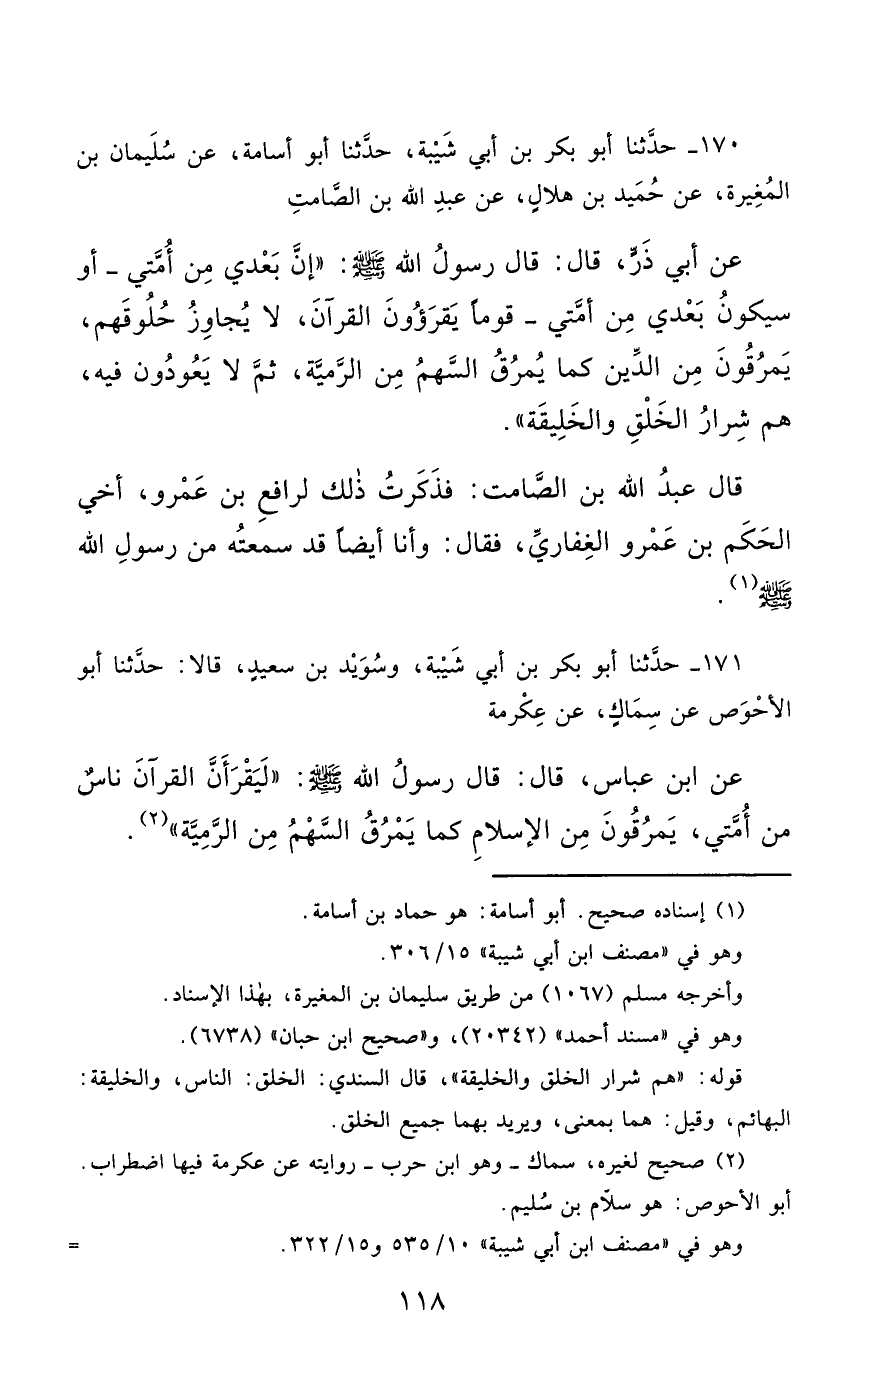 ١٧٠ـ حدَّثنا أبو بكر بن أبي شَيْبة، حدَّثنا أبو أسامة، عن سُلَيمان بن
المُغِيرة، عن حُمَيد بن هلالٍ، عن عبدِ الله بن الصَّامتِ
عن أبي ذَرٍّ، قال: قال رسولُ الله ﷺ: «إنَّ بَعْدي مِن أُمَّتي ـ أو
سيكونُ بَعْدي مِن أمَّتي ـ قوماً يَقرَؤُونَ القرآنَ، لا يُجاوِزُ حُلُوقَهم،
يَمرُقُونَ مِن الدِّين كما يُمرُقُ السَّهمُ مِن الرَّميَّة، ثمَّ لا يَعُودُون فيه،
هم شِرارُ الخَلْقِ والخَلِيقَة».
قال عبدُ الله بن الصَّامت: فذَكَرتُ ذٰلك لرافعِ بن عَمْرو، أخي
الحَكَم بن عَمْرو الغِفاريِّ، فقال: وأنا أيضاً قد سمعتُه من رسولِ الله
ﷺ(١).
١٧١ـ حدَّثنا أبو بكر بن أبي شَيْبة، وسُوَيْد بن سعيدٍ، قالا: حدَّثنا أبو
الأحْوَص عن سِمَاكٍ، عن عِكْرمة
عن ابن عباس، قال: قال رسولُ الله ﷺ: «لَيَقْرَأَنَّ القرآنَ ناسٌ
من أُمَّتي، يَمرُقُونَ مِن الإسلامِ كما يَمْرُقُ السَّهْمُ مِن الرَّمِيَّة»(٢).
(١) إسناده صحيح. أبو أسامة: هو حماد بن أسامة.
وهو في «مصنف ابن أبي شيبة» ٣٠٦/١٥.
وأخرجه مسلم (١٠٦٧) من طريق سليمان بن المغيرة، بهٰذا الإسناد.
وهو في «مسند أحمد» (٢٠٣٤٢)، و«صحيح ابن حبان» (٦٧٣٨).
قوله: «هم شرار الخلق والخليقة»، قال السندي: الخلق: الناس، والخليقة:
البهائم، وقيل: هما بمعنى، ويريد بهما جميع الخلق.
(٢) صحيح لغيره، سماك ـ وهو ابن حرب ـ روايته عن عكرمة فيها اضطراب.
أبو الأحوص: هو سلّام بن سُليم.
وهو في «مصنف ابن أبي شيبة» ٥٣٥/١٠ و٣٢٢/١٥. =
١١٨